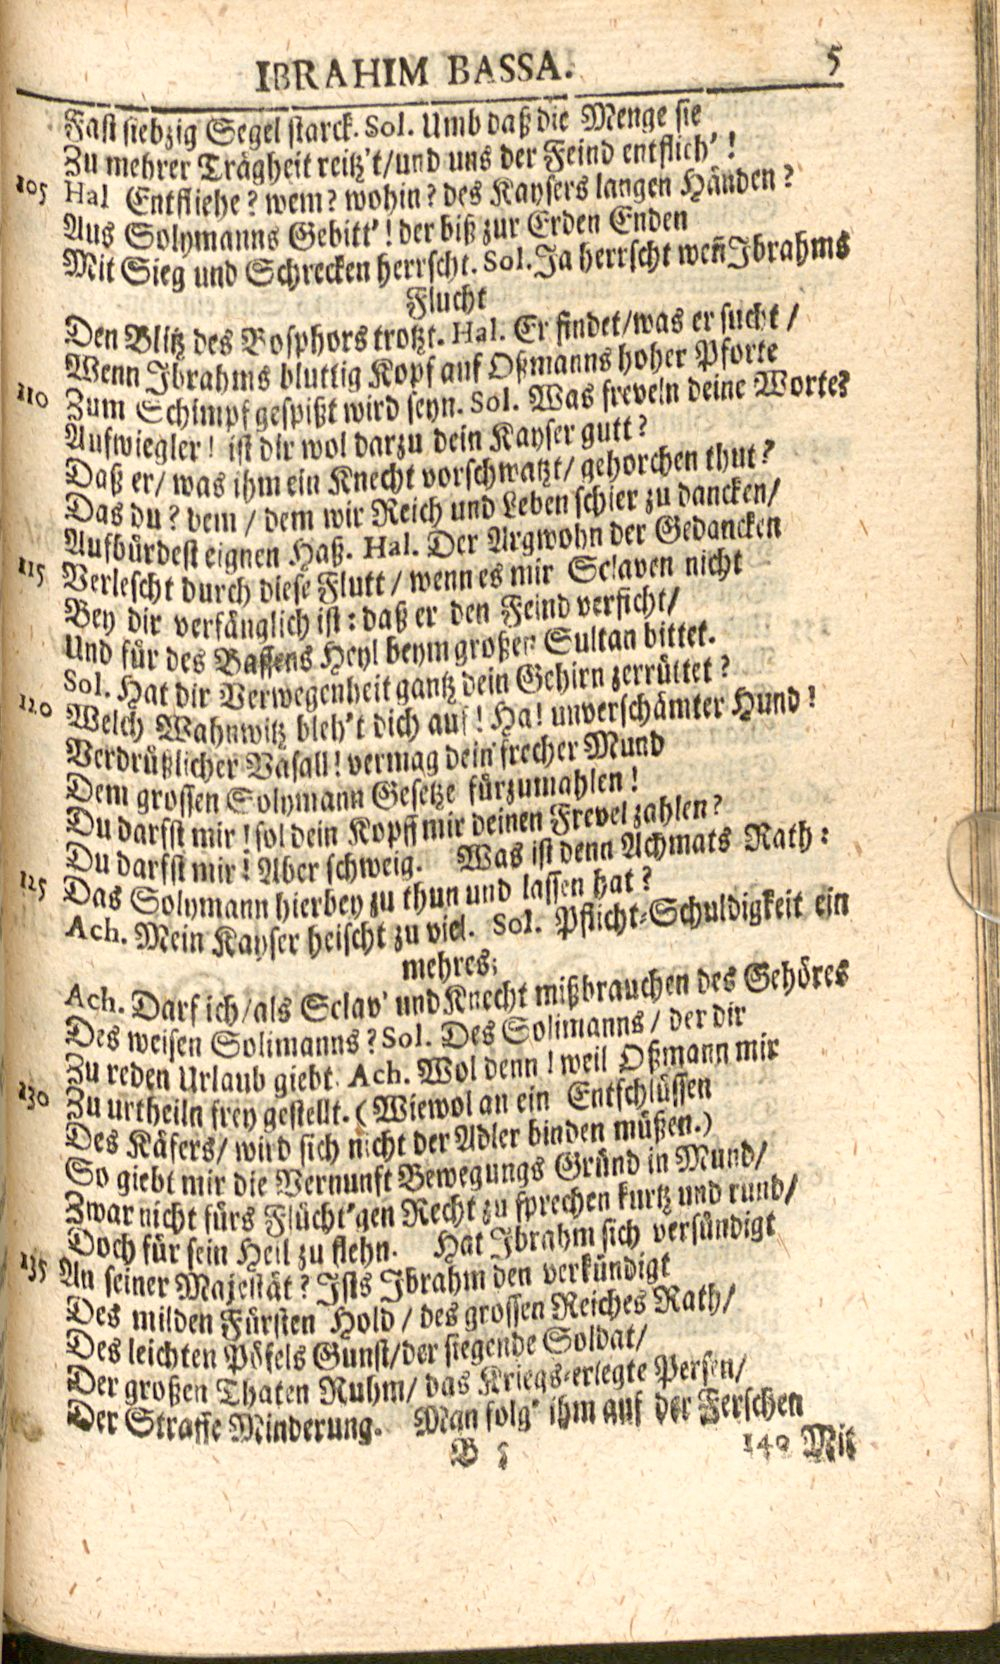 IBRAHIM BASSA. 5
Fast siebzig Segel starck. Sol. Umb daß die Menge sie
Zu mehrer Trägheit reitz't/und uns der Feind entflich'!
105 Hal Entfliehe? wem? wohin? des Kaysers langen Händen?
Aus Solymanns Gebitt'! der biß zur Erden Enden
Mit Sieg und Schrecken herrscht. Sol. Ja herrscht weñ Ibrahms
Flucht
Den Blitz des Bosphors trotzt. Hal. Er findet/was er sucht /
Wenn Ibrahms bluttig Kopf auf Oßmanns hoher Pforte
110 Zum Schimpf gespißt wird seyn. Sol. Was freveln deine Worte?
Aufwiegler! ist dir wol darzu dein Kayser gutt?
Daß er/ was ihm ein Knecht vorschwatzt/ gehorchen thut?
Das du? dem / dem wir Reich und Leben schier zu dancken/
Aufbürdest eignen Haß. Hal. Der Argwohn der Gedancken
115 Verlescht durch diese Flutt / wenn es mir Sclaven nicht
Bey dir verfänglich ist: daß er den Feind verficht/
Und für des Bassens Heyl beym großen Sultan bittet.
Sol. Hat dir Verwegenheit gantz dein Gehirn zerrüttet?
120 Welch Wahnwitz bleh't dich auf! Ha! unverschämter Hund!
Verdrüßlicher Vasall! vermag dein frecher Mund
Dem grossen Solymann Gesetze fürzumahlen!
Du darfst mir! sol dein Kopff mir deinen Frevel zahlen?
Du darfst mir! Aber schweig. Was ist denn Achmats Rath:
125 Das Solymann hierbey zu thun und lassen hat?
Ach. Mein Kayser heischt zu viel. Sol. Pflicht-Schuldigkeit ein
mehres;
Ach. Darf ich/als Sclav' und Knecht mißbrauchen des Gehöres
Des weisen Solimanns? Sol. Des Solimanns / der dir
Zu reden Urlaub giebt. Ach. Wol denn! weil Oßmann mir
130 Zu urtheiln frey gestellt. (Wiewol an ein Entschlüssen
Des Käfers/ wird sich nicht der Adler binden müßen.)
So giebt mir die Vernunft Bewegungs Gründ in Mund/
Zwar nicht fürs Flücht'gen Recht zu sprechen kurtz und rund/
Doch für sein Heil zu flehn. Hat Ibrahm sich versündigt
135 An seiner Majestät? Ists Ibrahm den verkündigt
Des milden Fürsten Hold / des grossen Reiches Rath/
Des leichten Pöfels Gunst/der siegende Soldat/
Der großen Thaten Ruhm/ das Kriegs-erlegte Persen/
Der Straffe Minderung. Man folg' ihm auf der Ferschen
B 5 140 Mit